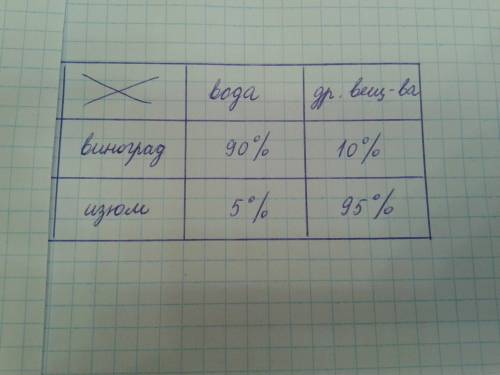 вода др. вещ-ва
виноград 90% 10%
изюм 5% 95%